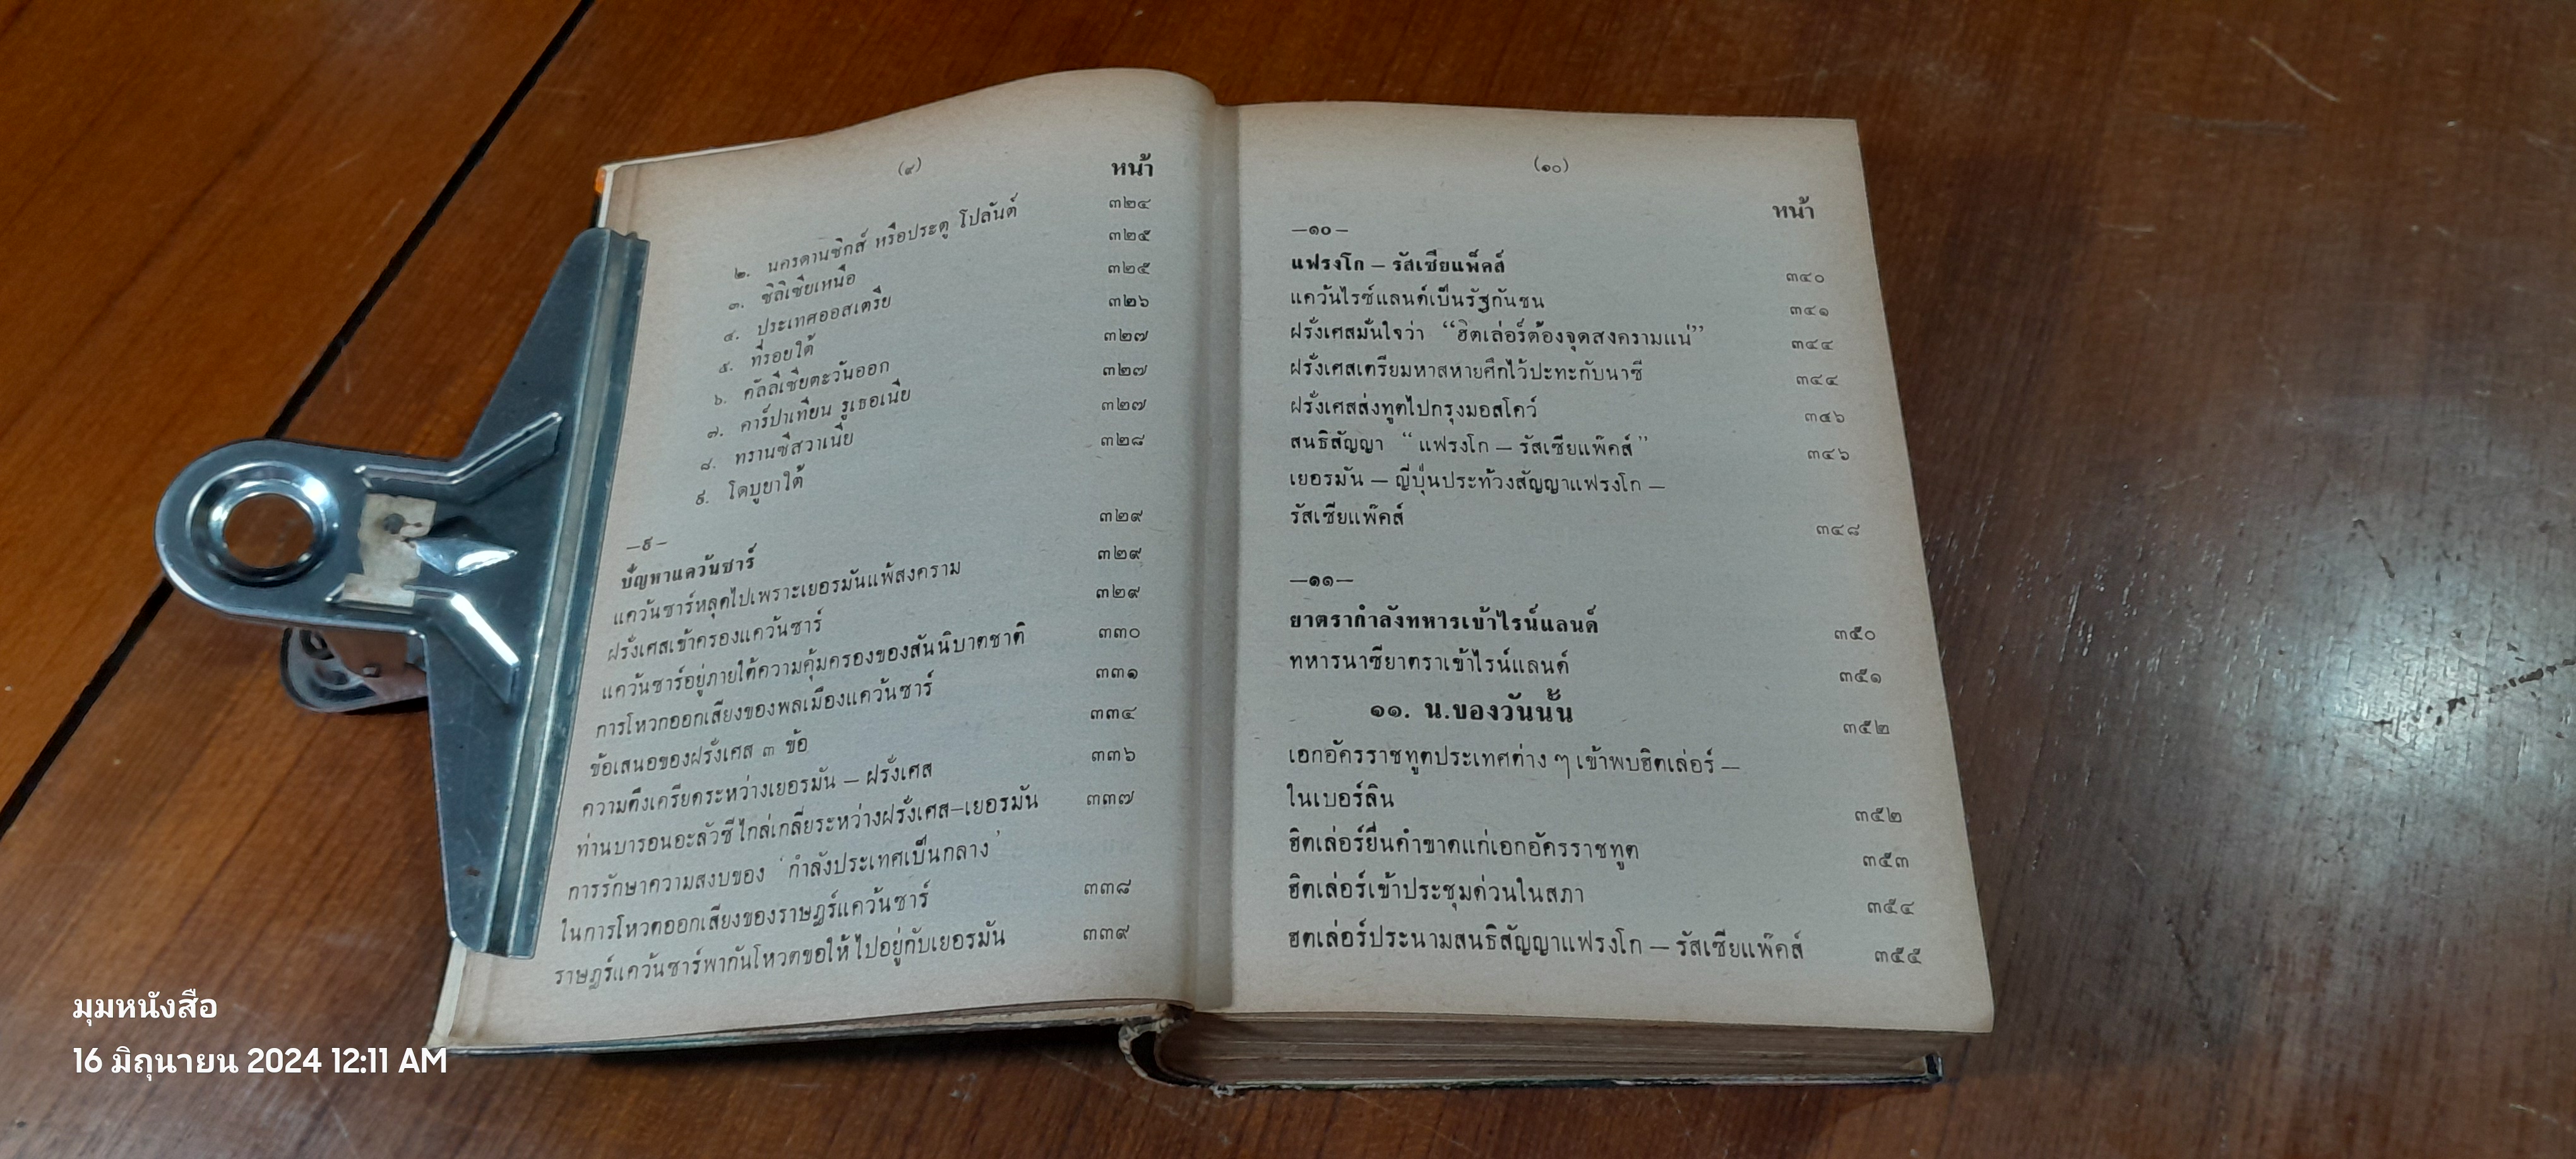 (๙)
หน้า
๒. นครดานซิกส์ หรือประตู โปลันต์ ๓๒๔
๓. ซิลิเซียเหนือ ๓๒๕
๔. ประเทศออสเตรีย ๓๒๕
๕. ที่รอยใต้ ๓๒๖
๖. คัลลีเซียตะวันออก ๓๒๗
๗. คาร์ปาเทียน รูเธอเนีย ๓๒๗
๘. ทรานซีสวาเนีย ๓๒๗
๙. โดบูยาใต้ ๓๒๘
—๙—
ปัญหาแคว้นซาร์ ๓๒๙
แคว้นซาร์หลุดไปเพราะเยอรมันแพ้สงคราม ๓๒๙
ฝรั่งเศสเข้าครองแคว้นซาร์ ๓๒๙
แคว้นซาร์อยู่ภายใต้ความคุ้มครองของสันนิบาตชาติ ๓๓๐
การโหวกออกเสียงของพลเมืองแคว้นซาร์ ๓๓๑
ข้อเสนอของฝรั่งเศส ๓ ข้อ ๓๓๔
ความตึงเครียดระหว่างเยอรมัน — ฝรั่งเศส ๓๓๖
ท่านบารอนอะลัวซีไกล่เกลี่ยระหว่างฝรั่งเศส—เยอรมัน ๓๓๗
การรักษาความสงบของ ‘กำลังประเทศเป็นกลาง’
ในการโหวตออกเสียงของราษฎร์แคว้นซาร์ ๓๓๘
ราษฎร์แคว้นซาร์พากันโหวตขอให้ไปอยู่กับเยอรมัน ๓๓๙
(๑๐)
หน้า
—๑๐—
แฟรงโก — รัสเซียแพ็คส์ ๓๔๐
แคว้นไรซ์แลนด์เป็นรัฐกันชน ๓๔๑
ฝรั่งเศสมั่นใจว่า “ฮิตเล่อร์ต้องจุดสงครามแน่” ๓๔๔
ฝรั่งเศสเตรียมหาสหายศึกไว้ปะทะกับนาซี ๓๔๔
ฝรั่งเศสส่งทูตไปกรุงมอสโคว์ ๓๔๖
สนธิสัญญา “แฟรงโก — รัสเซียแพ๊คส์” ๓๔๖
เยอรมัน — ญี่ปุ่นประท้วงสัญญาแฟรงโก —
รัสเซียแพ๊คส์ ๓๔๘
—๑๑—
ยาตรากำลังทหารเข้าไรน์แลนด์ ๓๕๐
ทหารนาซียาตราเข้าไรน์แลนด์ ๓๕๑
๑๑. น.ของวันนั้น ๓๕๒
เอกอัครราชทูตประเทศต่าง ๆ เข้าพบฮิตเล่อร์ —
ในเบอร์ลิน ๓๕๒
ฮิตเล่อร์ยื่นคำขาดแก่เอกอัครราชทูต ๓๕๓
ฮิตเล่อร์เข้าประชุมด่วนในสภา ๓๕๔
ฮตเล่อร์ประนามสนธิสัญญาแฟรงโก — รัสเซียแพ๊คส์ ๓๕๕
มุมหนังสือ
16 มิถุนายน 2024 12:11 AM